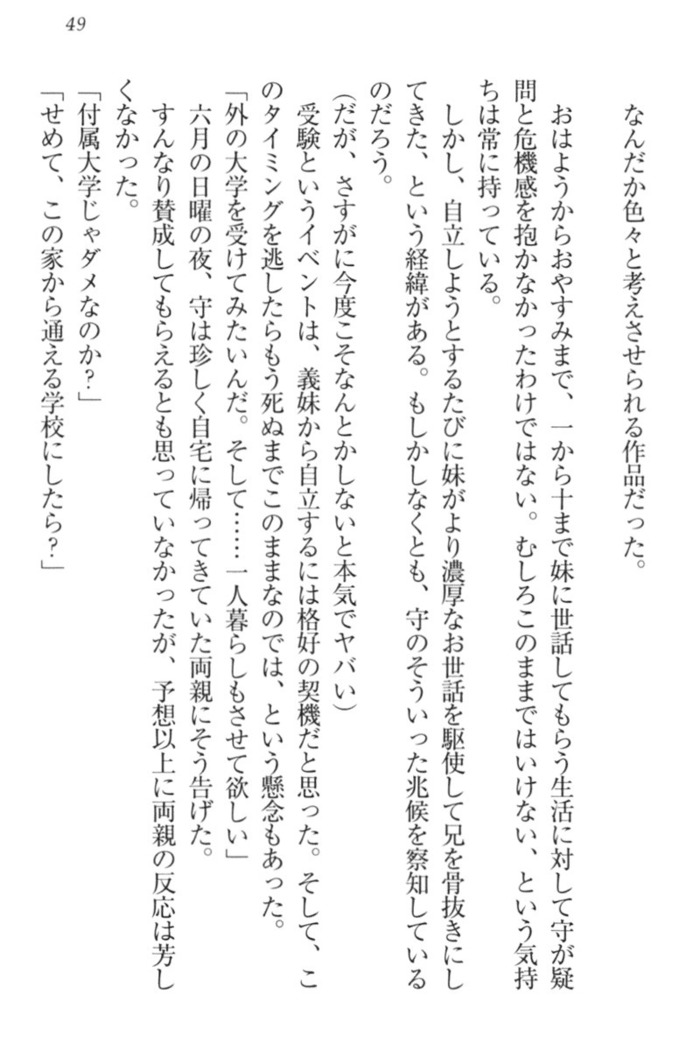 49
なんだか色々と考えさせられる作品だった。
おはようからおやすみまで、一から十まで妹に世話してもらう生活に対して守が疑
問と危機感を抱かなかったわけではない。むしろこのままではいけない、という気持
ちは常に持っている。
しかし、自立しようとするたびに妹がより濃厚なお世話を駆使して兄を骨抜きにし
てきた、という経緯がある。もしかしなくとも、守のそういった兆候を察知している
のだろう。
(だが、さすがに今度こそなんとかしないと本気でヤバい)
受験というイベントは、義妹から自立するには格好の契機だと思った。そして、こ
のタイミングを逃したらもう死ぬまでこのままなのでは、という懸念もあった。
「外の大学を受けてみたいんだ。そして……一人暮らしもさせて欲しい」
六月の日曜の夜、守は珍しく自宅に帰ってきていた両親にそう告げた。
すんなり賛成してもらえるとも思っていなかったが、予想以上に両親の反応は芳し
くなかった。
「付属大学じゃダメなのか?」
「せめて、この家から通える学校にしたら?」